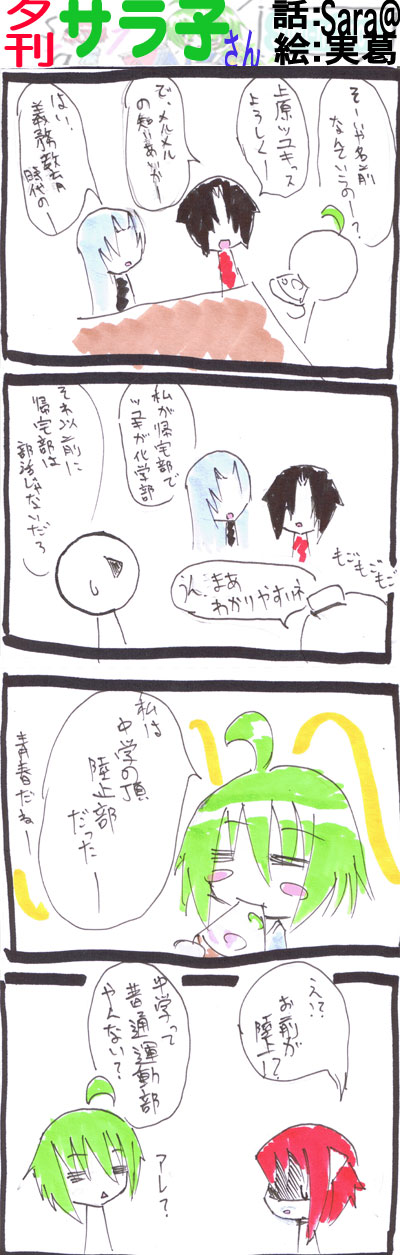 夕刊
サラ子さん
話:Sara@
絵:実葛
そーいや名前
なんていうのー?
上原ツユキっス
よろしくー
で、メルメル
の知りあいかー
はい、
義務教育
時代のー
私が帰宅部で
ツユキが化学部
もごもごもご
うん、まあ
わかりやすいネ
それ以前に
帰宅部は
部活じゃないだろ
私は
中学の頃
陸上部
だったー
青春だねー
え!?
お前が
陸上!?
中学って
普通運動部
やんない?
アレ?